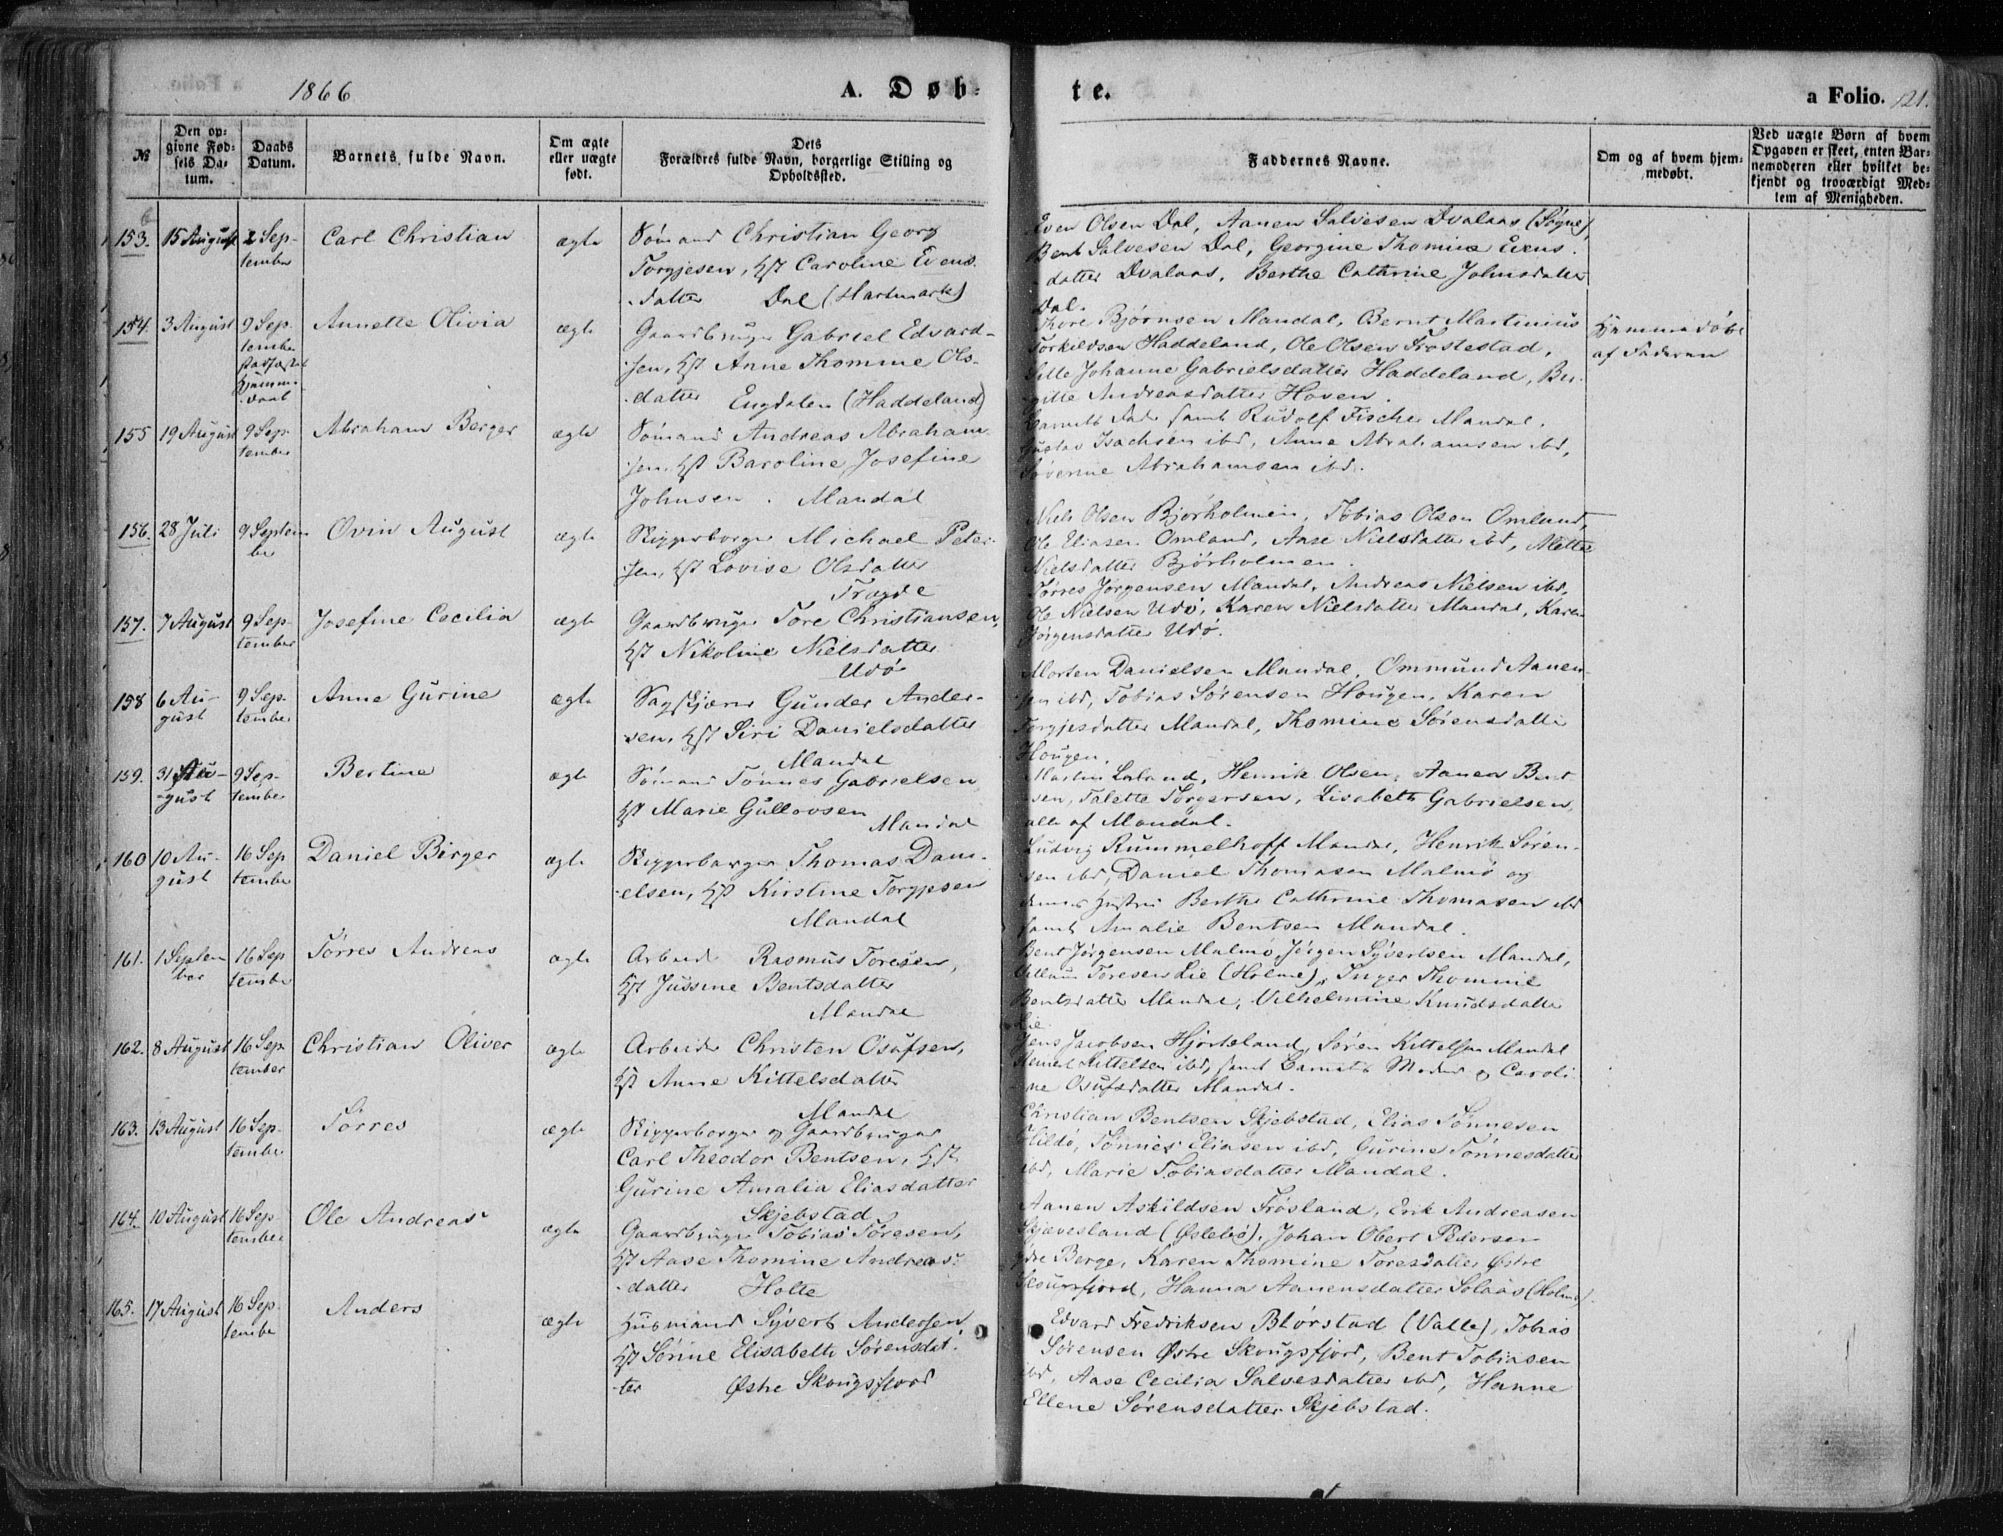 1866
A. Døb-
te.
a Folio. 121.
№
Den op-
givne Fød-
sels Da-
tum.
Daabs
Datum.
Barnets fulde Navn.
Om ægte
eller uægte
født.
Dets
Forældres fulde Navn, borgerlige Stilling og
Opholdssted.
Faddernes Navne.
Om og af hvem hjem-
medøbt.
Ved uægte Børn af hvem
Opgaven er skeet, enten Bar-
nemoderen eller hvilket be-
kjendt og troværdigt Med-
lem af Menigheden.
153. 15 August 2 Sep-
tember
Carl Christian
ægte
Sømand Christian Georg
Torgjesen, Hst Caroline Evens-
datter Dal (Hartmark)
Even Olsen Dal, Aanen Salvesen Dvalaas (Søgne),
Bent Salvesen Dal, Georgine Thomine Evens-
datter Dvalaas, Berthe Cathrine Johnsdatter
Dal.
154. 3 August 9 Sep-
tember
stadfæstet
Hjemme-
daab
Annette Olivia
ægte
Gaardbruger Gabriel Edvard-
sen, Hst Anne Thomine Ols-
datter Engdalen (Haddeland)
Thore Bjørnsen Mandal, Bernt Martinius
Torkildsen Haddeland, Ole Olsen Trostestad,
Sille Johanne Gabrielsdatter Haddeland, Bir-
gitte Andreasdatter Hoven.
Hjemmedøbt
af Faderen
155 19 August 9 Sep-
tember
Abraham Berger
ægte
Sømand Andreas Abraham-
sen, Hst Baroline Josefine
Johnsen. Mandal
Barnets Fader samt Rudolf Fischer Mandal,
Gustav Isachsen ibd, Anne Abrahamsen ibd,
Severine Abrahamsen ibd.
156. 28 Juli 9 Septem-
ber
Ovin August
ægte
Skipperborger Michael Peter-
sen, Hst Lovise Olsdatter
Tregde
Niels Olsen Bjørholmen, Tobias Olsen Omland,
Ole Eliasen Omland, Aase Nielsdatter ibd, Mette
Nielsdatter Bjørholmen.
157. 7 August 9 Sep-
tember
Josefine Cecilia
ægte
Gaardbruger Tore Christiansen,
Hst Nikoline Nielsdatter
Udø
Tørres Jørgensen Mandal, Andreas Nielsen ibd,
Ole Nielsen Udø, Karen Nielsdatter Mandal, Karen
Jørgensdatter Udø.
158 6 Au-
gust
9 Sep-
tember
Anne Gurine
ægte
Sagskjærer Gunder Ander-
sen, Hst Siri Danielsdatter
Mandal
Morten Danielsen Mandal, Ommund Aanen-
sen ibd, Tobias Sørensen Hougen, Karen
Torgjesdatter Mandal, Thomine Sørensdatter
Hougen.
159. 31 Au-
gust
9 Sep-
tember
Bertine
ægte
Sømand Tønnes Gabrielsen
Hst Marie Gullovsen
Mandal
Martin Loland, Henrik Olsen, Aanen Bent-
sen, Talette Torgersen, Lisabeth Gabrielsen,
alle af Mandal.
160 10 Au-
gust
16 Sep
tember
Daniel Birger
ægte
Skipperborger Thomas Dani-
elsen, Hst Kirstine Torgjesen
Mandal
Ludvig Rummelhoff Mandal, Henrik Søren-
sen ibd, Daniel Thomasen Malmø og
dennes Hustru Berthe Cathrine Thomasen ibd
samt Amalie Bentsen Mandal.
161. 1 Septem-
ber
16 Sep
tember
Tørres Andreas
ægte
Arbeider Rasmus Toresen,
Hst Jussine Bentsdatter
Mandal
Bent Jørgensen Malmø, Jørgen Syvertsen Mandal,
Villum Toresen Lie (Holme), Inger Thomine
Bentsdatter Mandal, Vilhelmine Knudsdatter
Lie
162. 8 August 16 Sep
tember
Christian Oliver
ægte
Arbeider Christen Osufsen,
Hst Anne Kittelsdatter
Mandal
Jens Jacobsen Hjorteland, Søren Kittelsen Mandal
Reinert Kittelsen ibd, samt Barnets Moder og Caroli-
ne Osufsdatter Mandal.
163. 13 August 16 Sep-
tember
Tørres
ægte
Skipperborger og Gaardbruger
Carl Theodor Bentsen, Hst
Gurine Amalia Eliasdatter
Skjebstad
Christian Bentsen Skjebstad, Elias Tønnesen
Hildø, Tønnes Eliasen ibd, Gurine Tønnesdatter
ibd, Marie Tobiasdatter Mandal.
164. 10 August 16 Sep-
tember
Ole Andreas
ægte
Gaardbruger Tobias Toresen,
Hst Aase Thomine Andreas-
datter Holte
Aanen Askildsen Frøsland, Erik Andreasen
Skjævesland (Øslebø), Johan Obert Pedersen
Berge, Karen Thomine Toresdatter Østre
Skougsfjord, Hanna Aanensdatter Solaas (Holme).
165. 17 August 16 Sep-
tember
Anders
ægte
Husmand Syvert Andersen
Hst Sørine Elisabeth Sørensdat-
ter Østre Skougsfjord
Edvard Fredriksen Blørstad (Valle), Tobias
Sørensen Østre Skougsfjord, Bent Tobiasen
ibd, Aase Cecilia Salvesdatter ibd, Hanne
Ellene Sørensdatter Skjebstad.